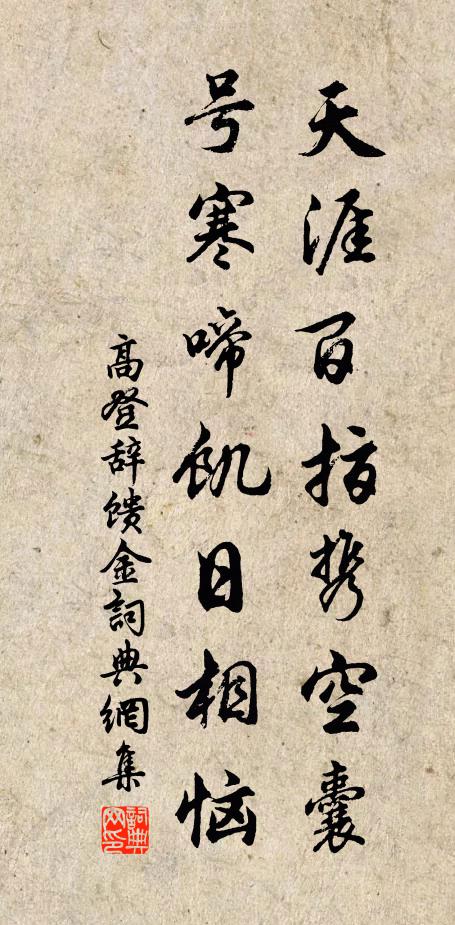 天涯百指携空囊
号寒啼饥日相恼
高登辞馈金詞典網集
詞典网印